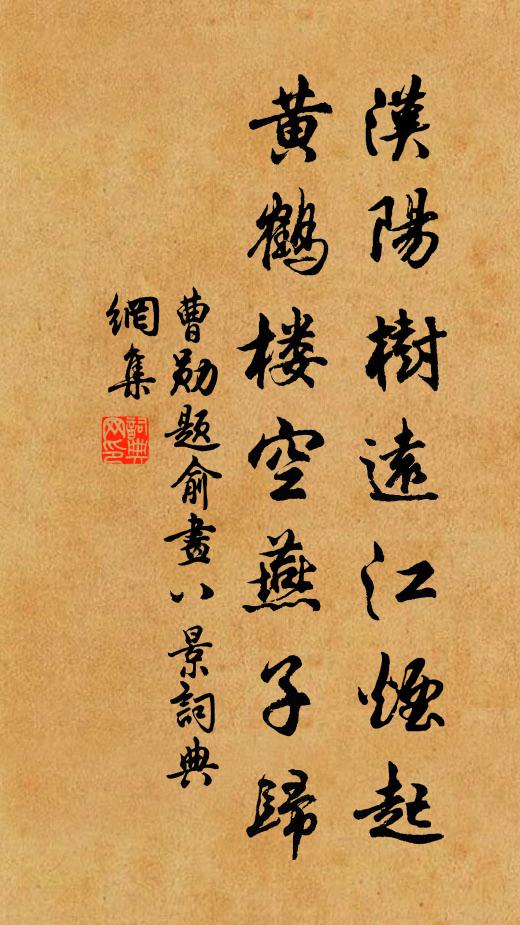 漢陽樹遠江煙起
黄鶴楼空燕子歸
曹勛題俞畫八景詞典
網集
詞典網印